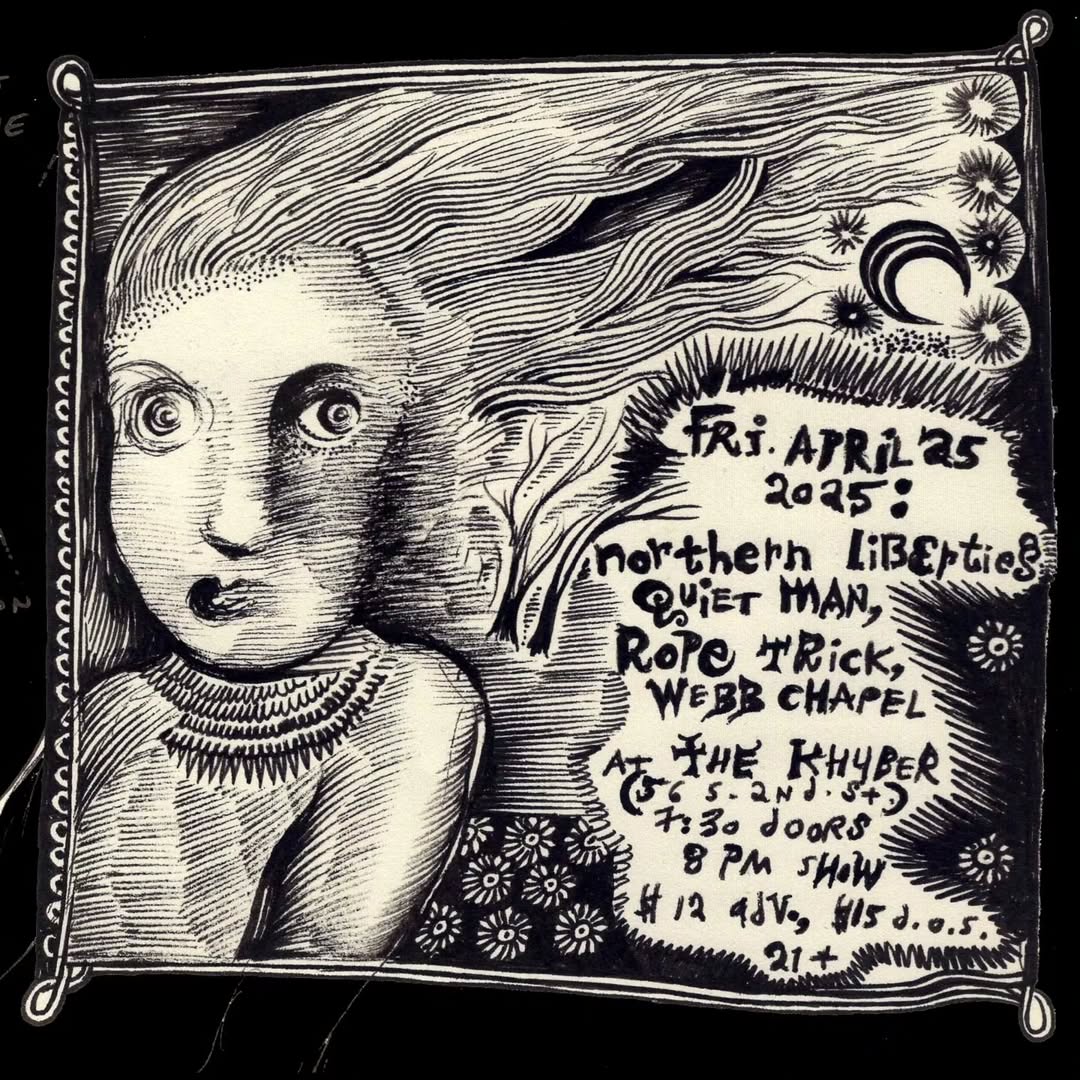 FRi. APRiL '25
2025:
northern LiBErties
QUiET MAN,
RoPe TRick,
WEBB CHAPEL
At THE KHYBER
(56 S. 2Nd. St.)
7:30 dOORS
8 PM SHoW
$12 adv., $15 d.o.s.
21+